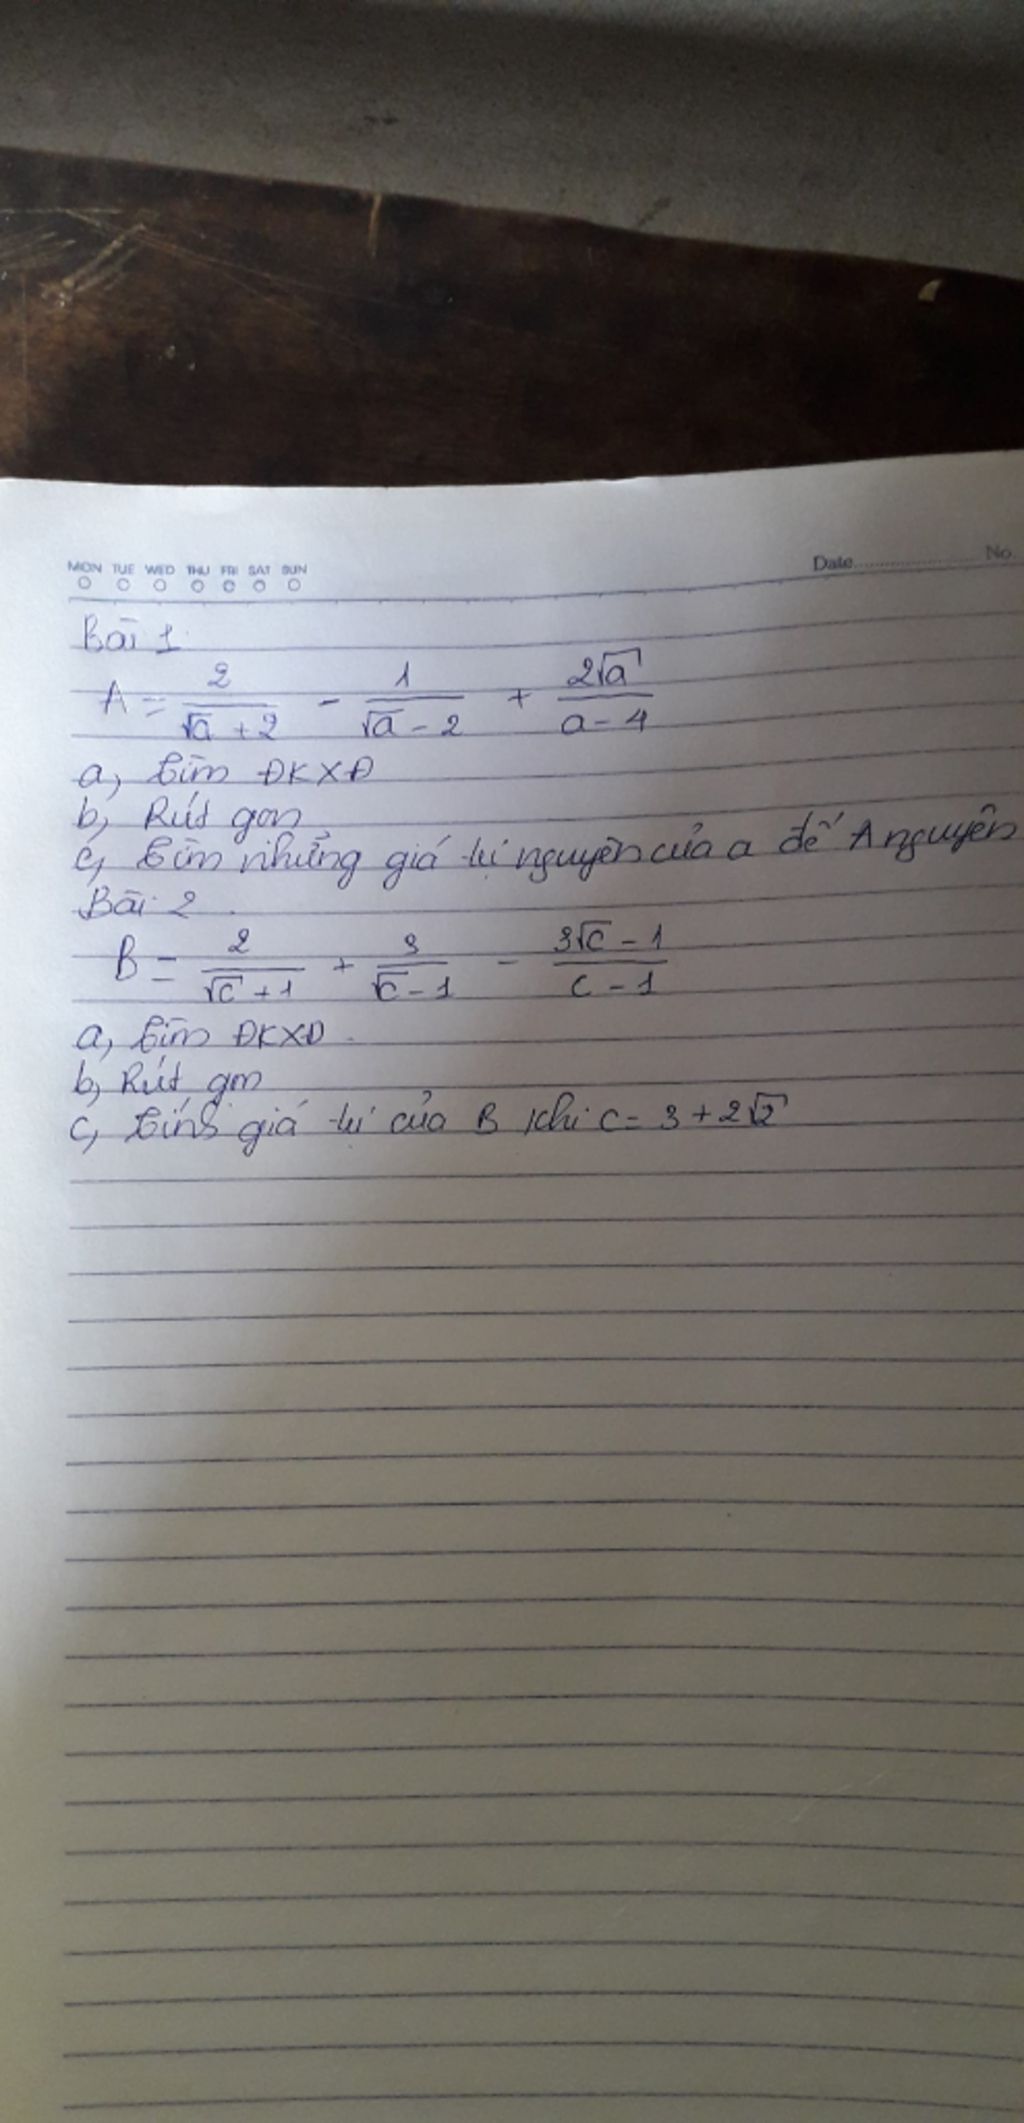 MON TUE WED THU FRI SAT SUN
Date No.
Bài 1
A = 2/(√a + 2) - 1/(√a - 2) + 2√a/(a - 4)
a, tìm ĐKXĐ
b, Rút gọn
c, tìm những giá trị nguyên của a để A nguyên
Bài 2
B = 2/(√c + 1) + 3/(√c - 1) - (3√c - 1)/(c - 1)
a, tìm ĐKXĐ
b, Rút gọn
c, tính giá trị của B khi c = 3 + 2√2